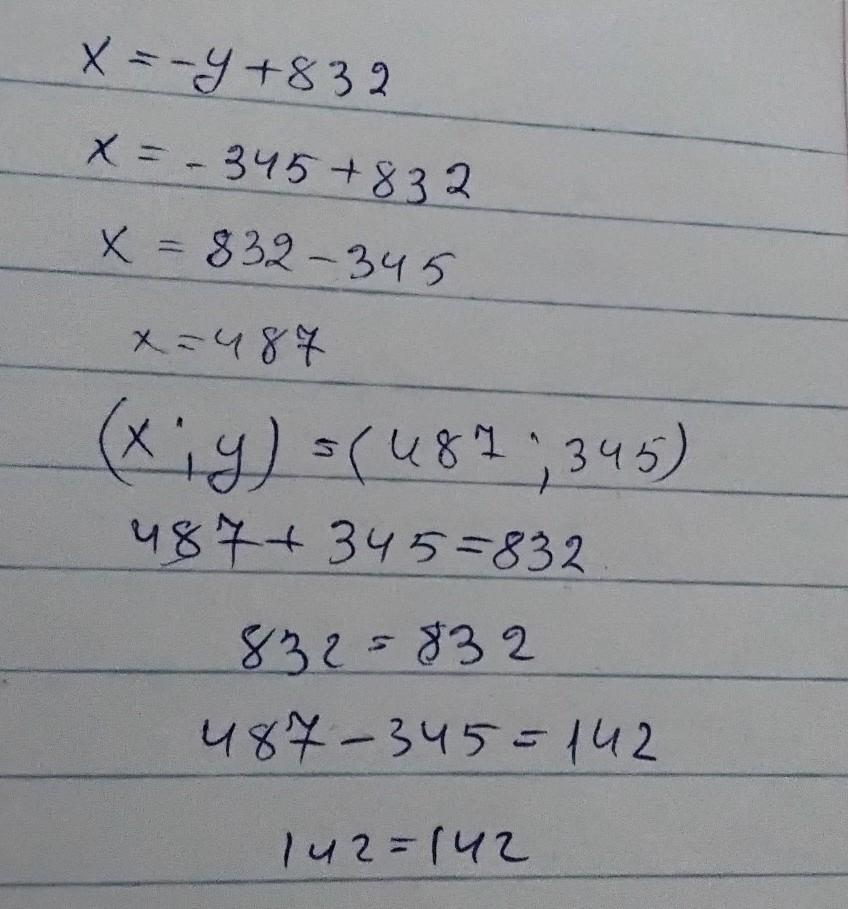 x = -y + 832
x = - 345 + 832
x = 832 - 345
x = 487
(x ; y) = (487 ; 345)
487 + 345 = 832
832 = 832
487 - 345 = 142
142 = 142